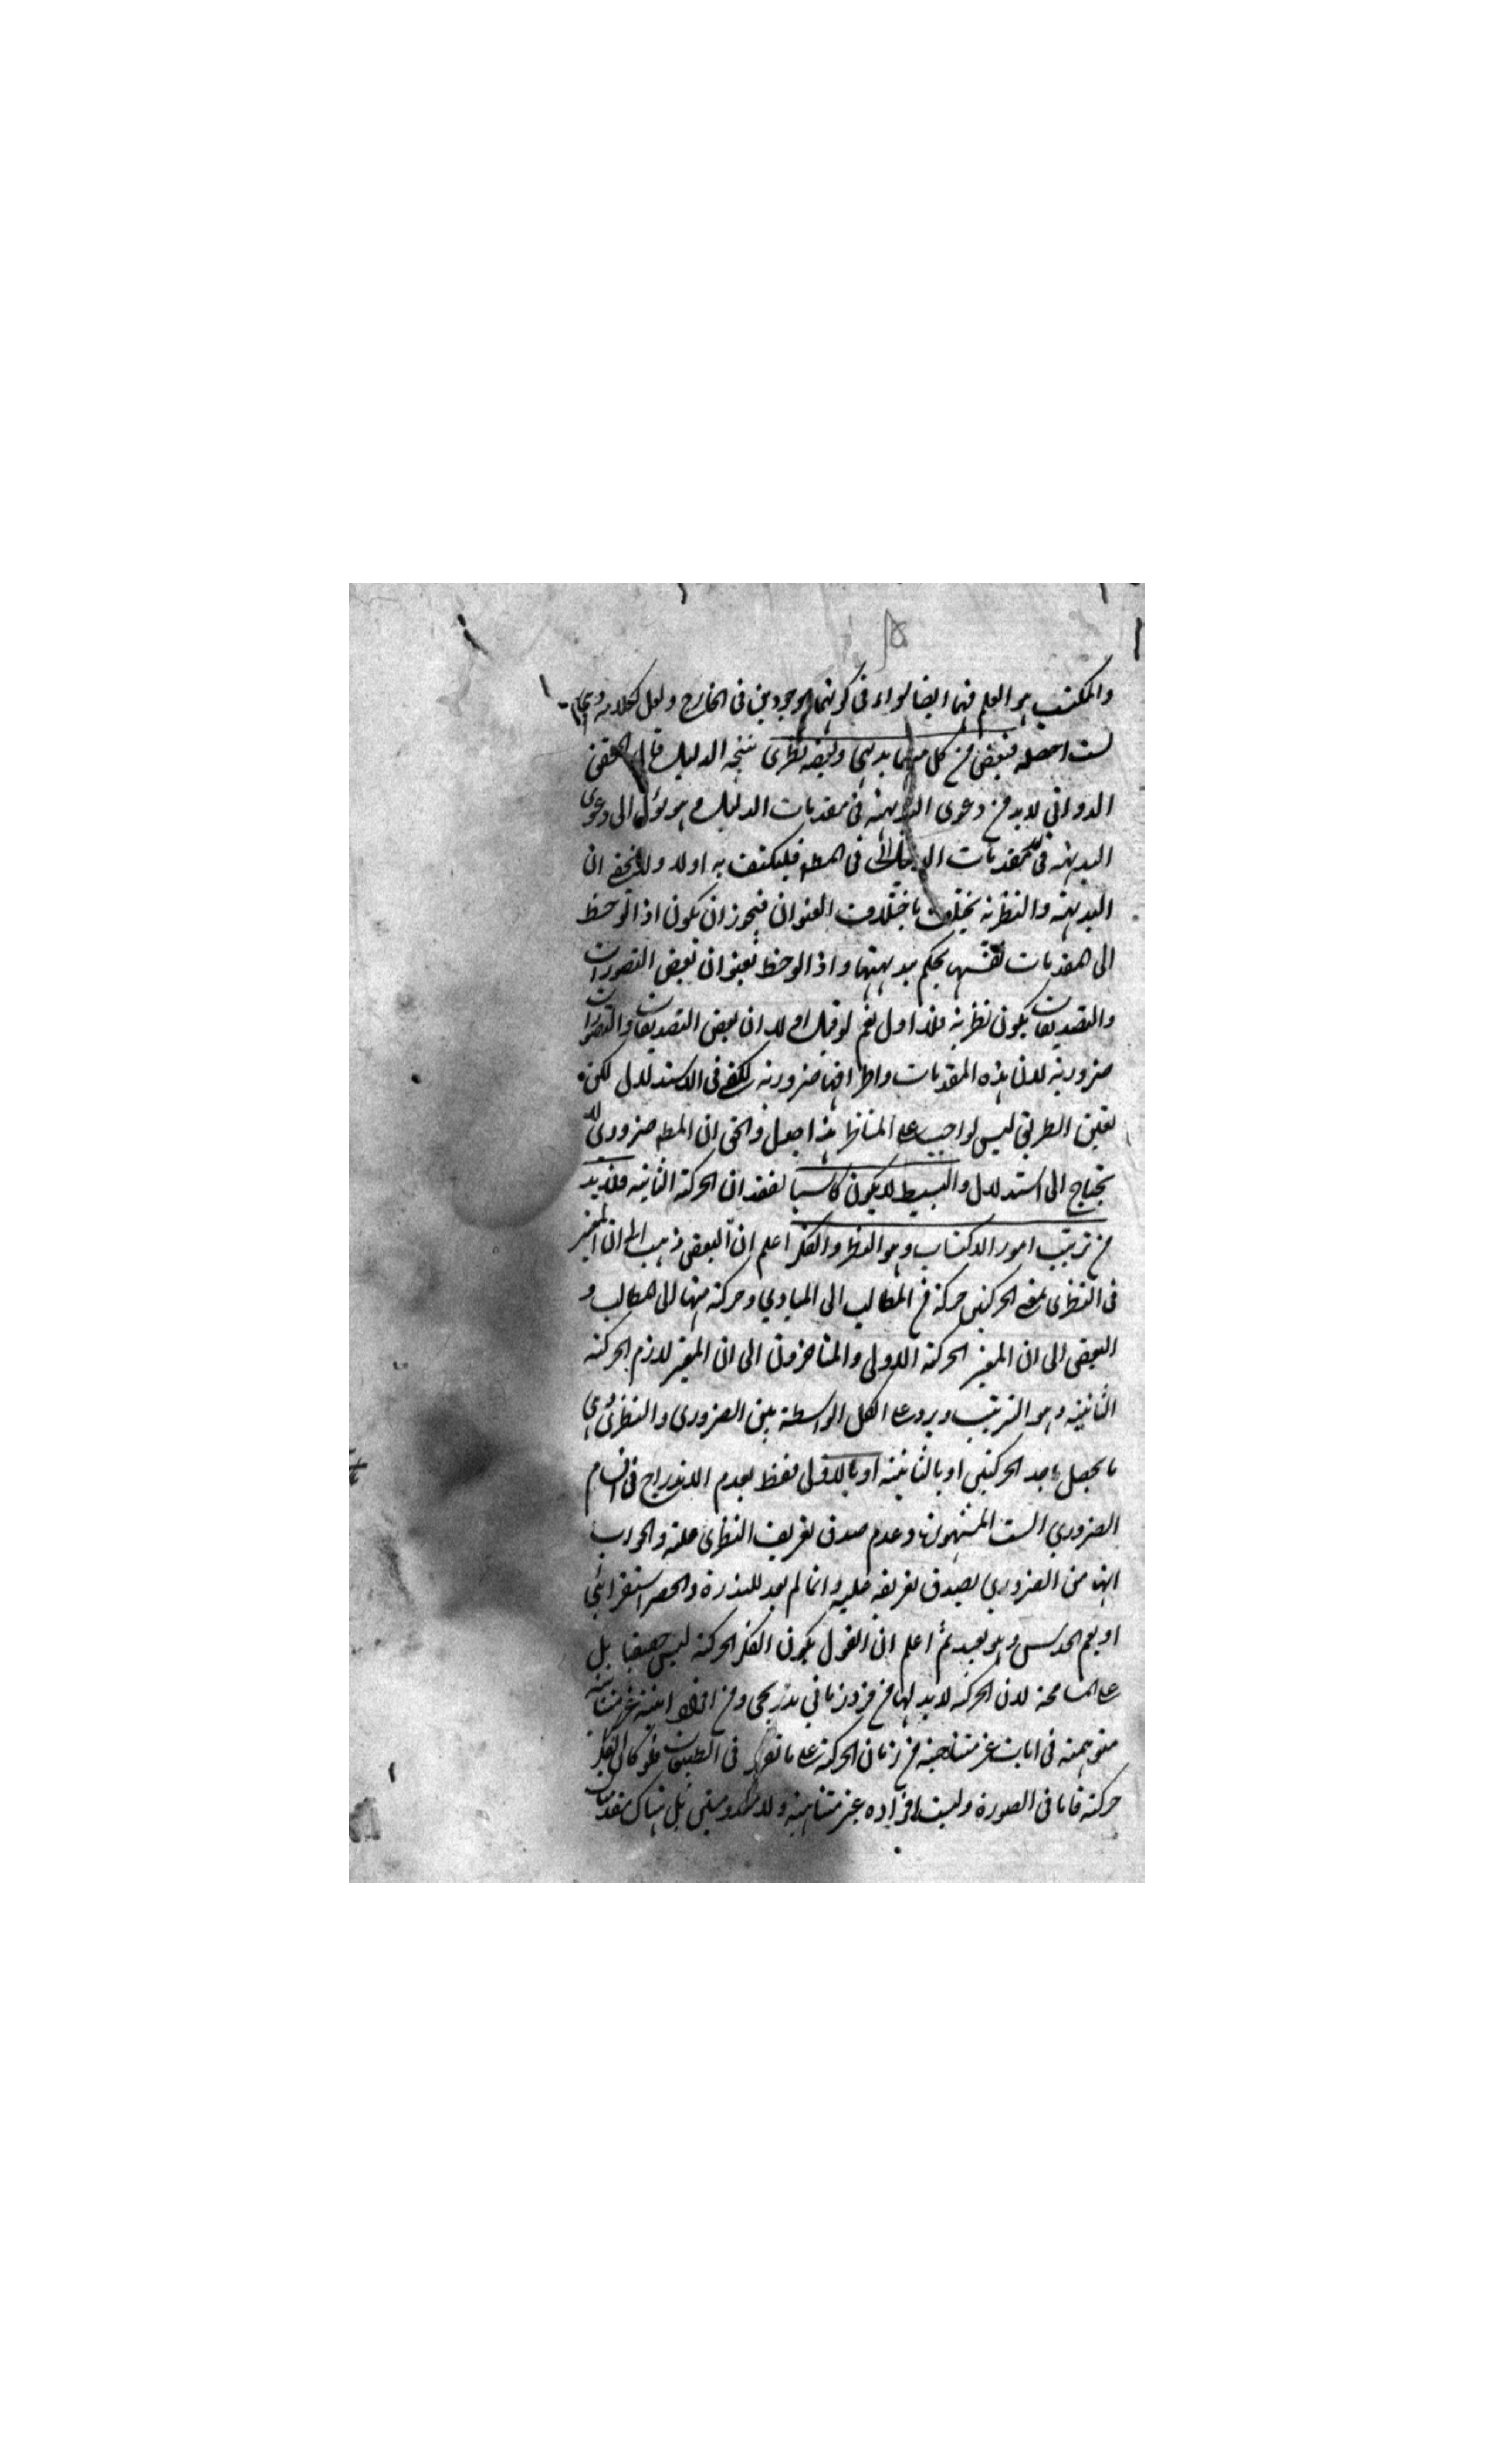 والمكتسب هو العلم فهما ايضا سواء فى كونهما موجودين فى الخارج ولعل لكلامه وجها
لست احصله فبعض من كل منهما بديهى وبعضه نظرى نتيجة الدليل قال المحقق
الدوانى لابد من دعوى البديهة فى مقدمات الدليل وهو يؤل الى دعوى
البديهة فى المقدمات فى المط فليكتف به اولا ولا يخفى ان
البديهة والنظرية يختلف باختلاف العنوان فيجوز ان يكون اذا لوحظ
الى المقدمات نفسها يحكم ببداهتها واذا لوحظ بعنوان بعض التصورات
والتصديقات يكون نظرية فلا اول نعم لو قيل اولا ان بعض التصديقات والتصورات
ضرورية لان هذه المقدمات واطرافها ضرورية لكفى فى الاستدلال لكن
تعيين الطريق ليس لواجب على المناظر هذا والحق ان المط ضرورى لا
يحتاج الى استدلال والبسيط لا يكون كاسبا لفقدان الحركة الثانية فلابد
من ترتيب امور للاكتساب وهو النظر والفكر اعلم ان البعض ذهب الى ان المعتبر
فى النظرى مجموع الحركتين حركة من المطالب الى المبادى وحركة منها الى المطالب و
البعض الى ان المعتبر الحركة الاولى والمتاخرون الى ان المعتبر لازم الحركة
الثانية وهو الترتيب ويرد على الكل الواسطة بين الضرورى والنظرى وهى
ما يحصل باحد الحركتين او بالثانية او بالاولى فقط لعدم الاندراج فى اقسام
الضرورى الست المشهورة وعدم صدق تعريف النظرى عليه والجواب
انه من الضرورى يصدق تعريفه عليه وانما لم يعد للندرة والحصر استقرائى
او يعم الحدس وهو بعيد ثم اعلم ان القول بكون الفكر الحركة ليس حقيقيا بل
على المسامحة لان الحركة لابد لها من فرد زمانى تدريجى ومن افراد انية غير متناهية
متوهمة فى انات غير متناهية من زمان الحركة على ما تقرر فى الطبيعيات فلو كان الفكر
حركة فاما فى الصورة وليست افراده غير متناهية بل هناك مقدمات